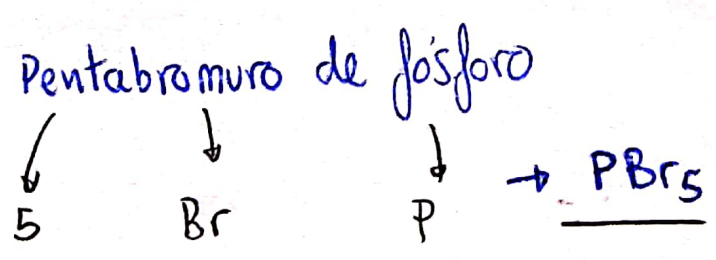 Pentabromuro de fósforo
5 Br P → PBr5